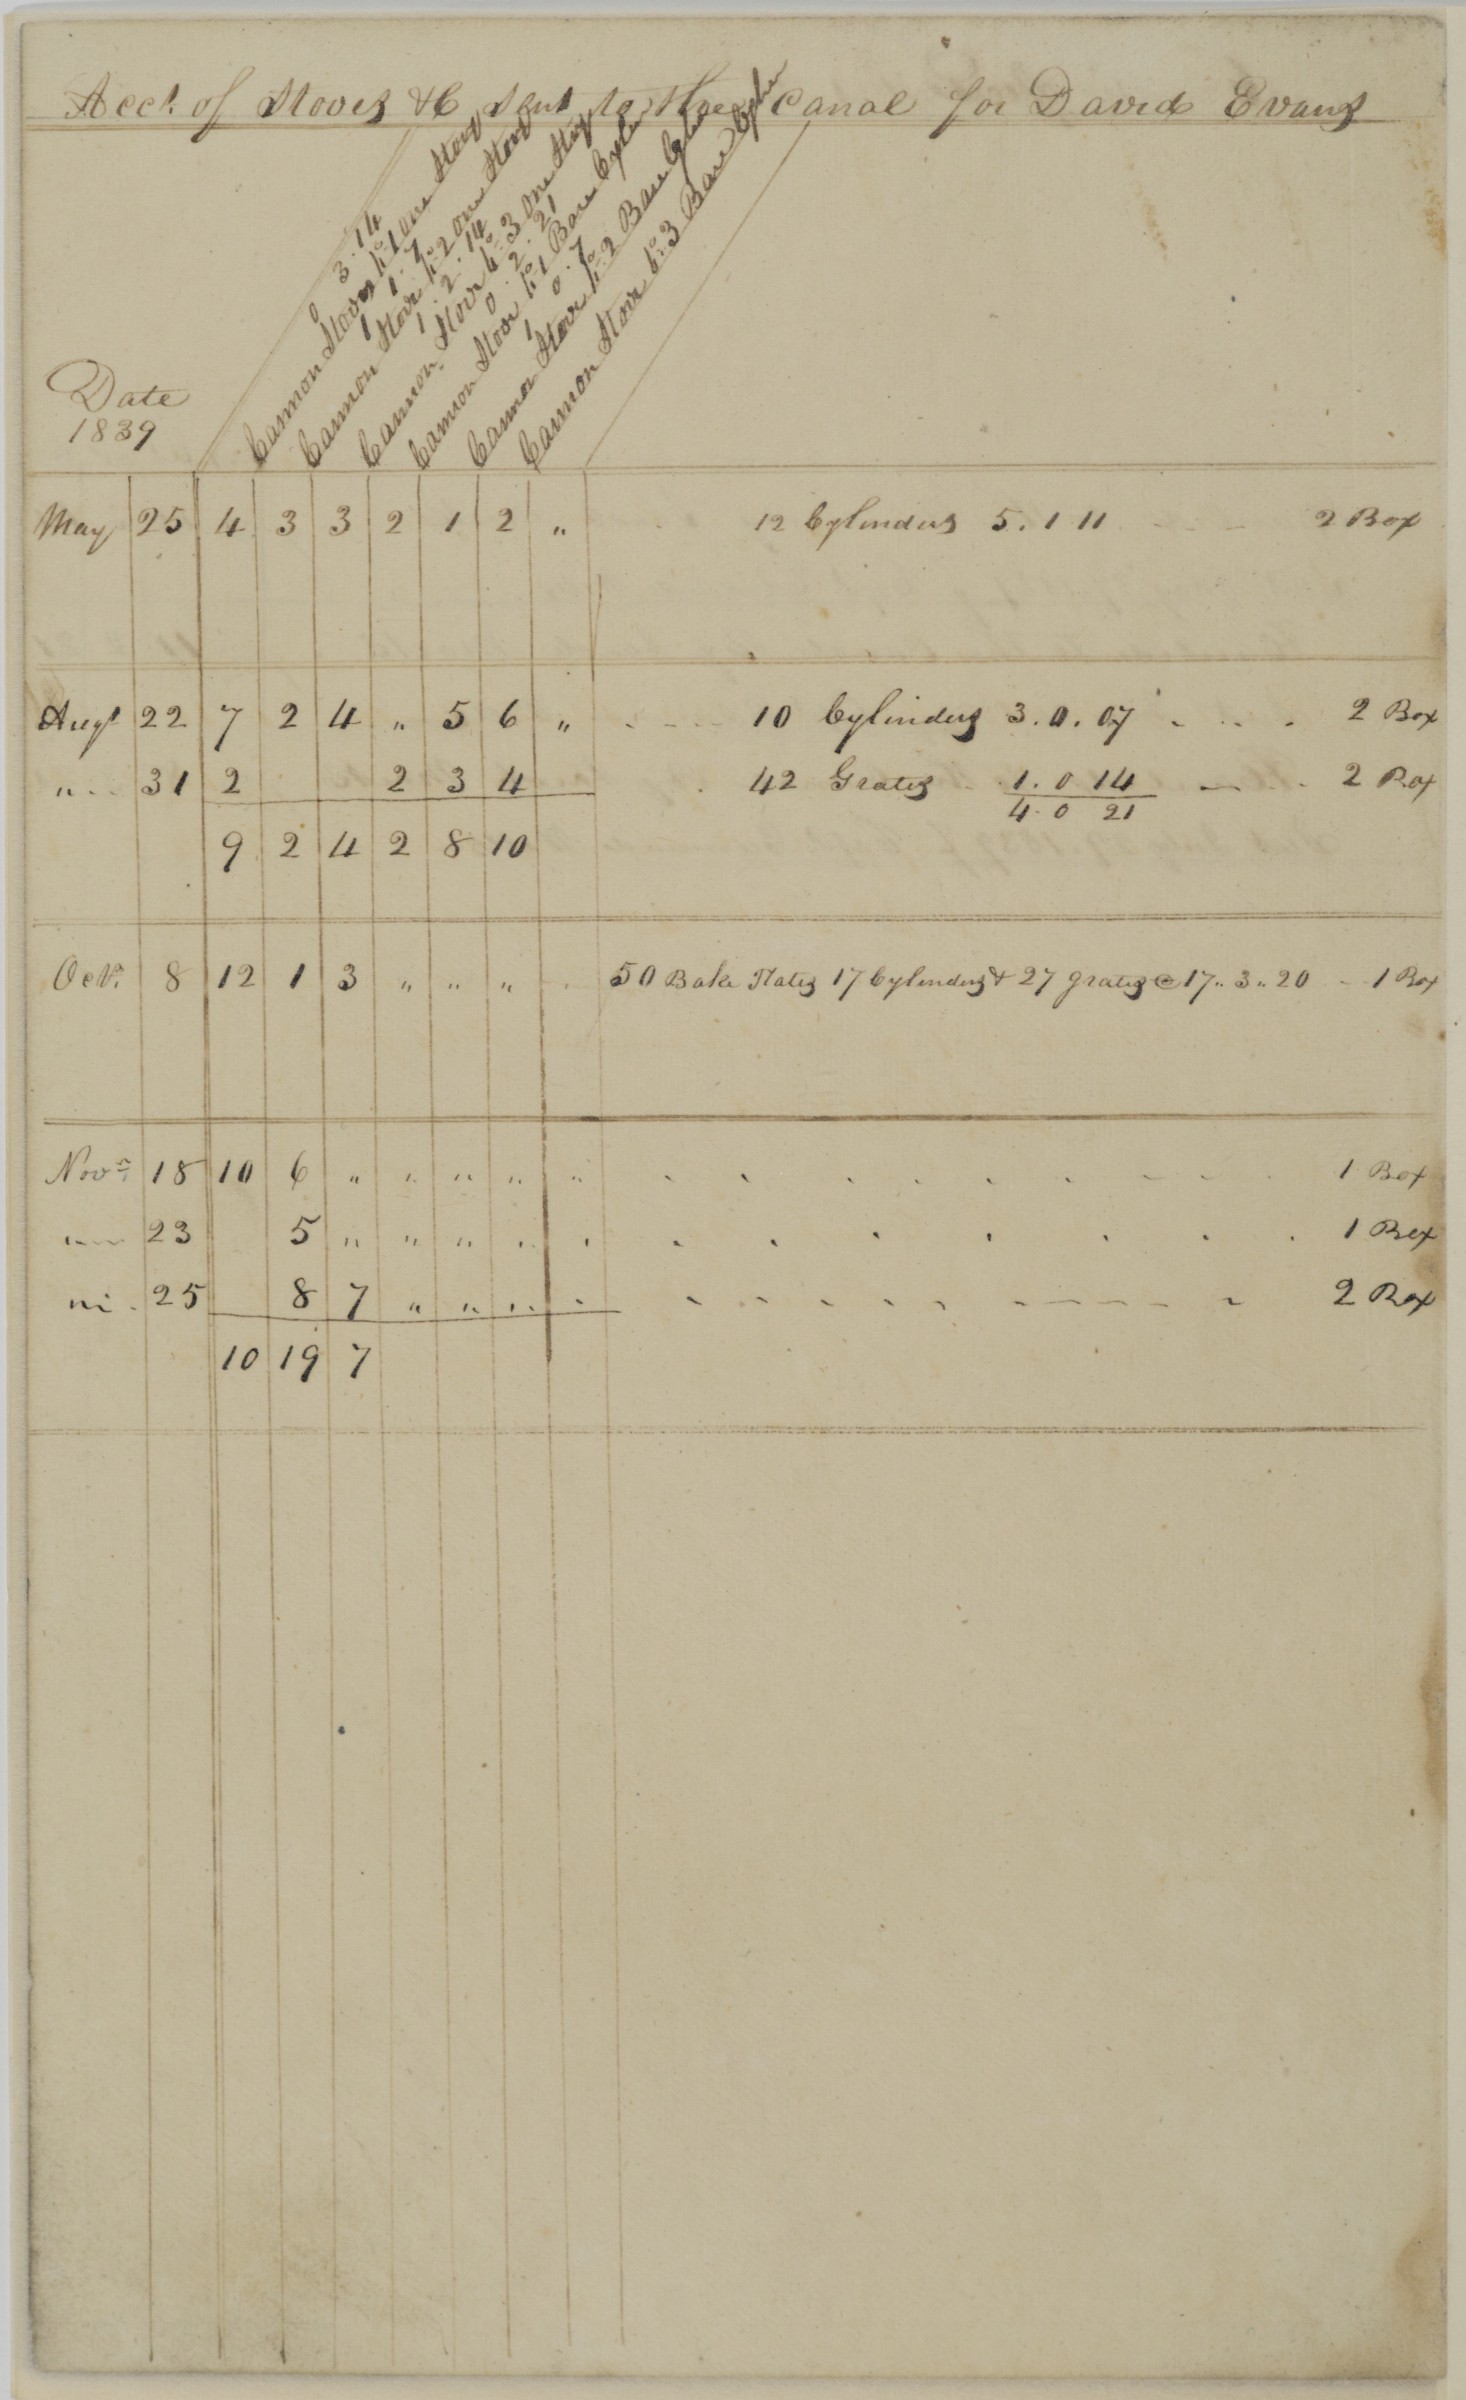 Acct. of Stoves &C Sent to the Canal for David Evans
0 3 . 14
Cannon Stoves No 1 One Story
1 . 1 . 7
Cannon Stove No 2 One Story
1 . 2 . 14
Cannon Stove No 3 One Story
0 . 2 . 21
Cannon Stove No 1 Bare Cylr
1 0 . 7
Cannon Stove No 2 Bare Cylr
Cannon Stove No 3 Bare Cylr
Date
1839
May 25 4 3 3 2 1 2 " 12 Cylinders 5 . 1 11 - - - 2 Box
Augt 22 7 2 4 " 5 6 " - - - - 10 Cylinders 3 . 0 . 07 - - - 2 Box
" - - 31 2 2 3 4 42 Grates 1 . 0 14 - - - 2 Box
4 . 0 21
9 2 4 2 8 10
Octr. 8 12 1 3 " " " 50 Bake Plates 17 Cylinders & 27 grates @ 17 " 3 " 20 - 1 Box
Novr 18 10 6 " " " " " 1 Box
" 23 5 " " " " 1 Box
" 25 8 7 " " " 2 Box
10 19 7